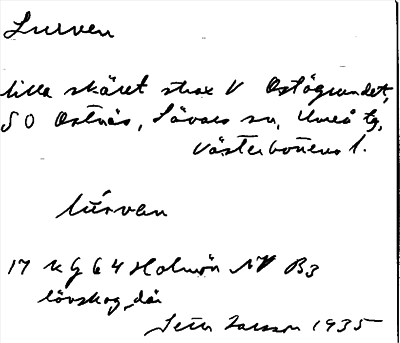 Lurven
lilla skäret strax V Ostögrundet,
SO Ostnäs, Sävars sn, Umeå tg,
Västerbottens l.
lúrvan
17 k g 64 Holmön NV B3
lövskog där
1935